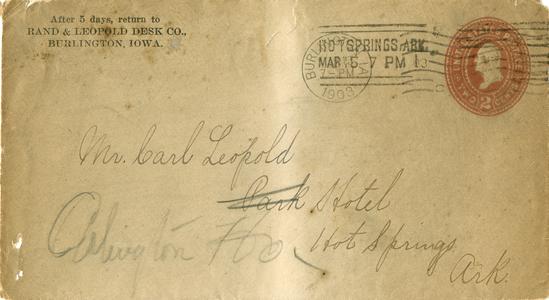 After 5 days, return to
RAND & LEOPOLD DESK CO.,
BURLINGTON, IOWA.
HOT SPRINGS ARK.
MAR 5 7 PM
BURL IA
7-PM
1903
2
Mr. Carl Leopold
Park Hotel
Arlington Ho
Hot Springs
Ark.